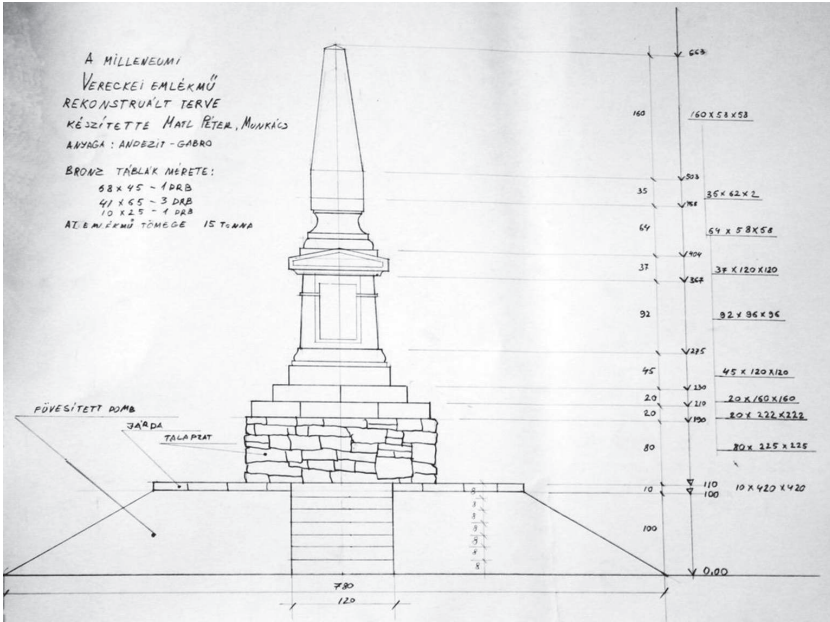 A MILLENEUMI
VERECKEI EMLÉKMŰ
REKONSTRUÁLT TERVE
KÉSZÍTETTE MATL PÉTER, MUNKÁCS
ANYAGA: ANDEZIT-GABRO
BRONZ TÁBLÁK MÉRETE:
68 X 45 - 1 DRB
41 X 65 - 3 DRB
10 X 25 - 1 DRB
AZ EMLÉKMŰ TÖMEGE 15 TONNA
663
160
160 X 58 X 58
503
35
35 X 62 X 2
468
64
64 X 58 X 58
404
37
37 X 120 X 120
367
92
92 X 96 X 96
275
45
45 X 120 X 120
230
20
20 X 160 X 160
210
20
20 X 222 X 222
190
80
80 X 225 X 225
FÜVESÍTETT DOMB
JÁRDA
TALAPZAT
110
10
10 X 420 X 420
100
100
0,00
780
120